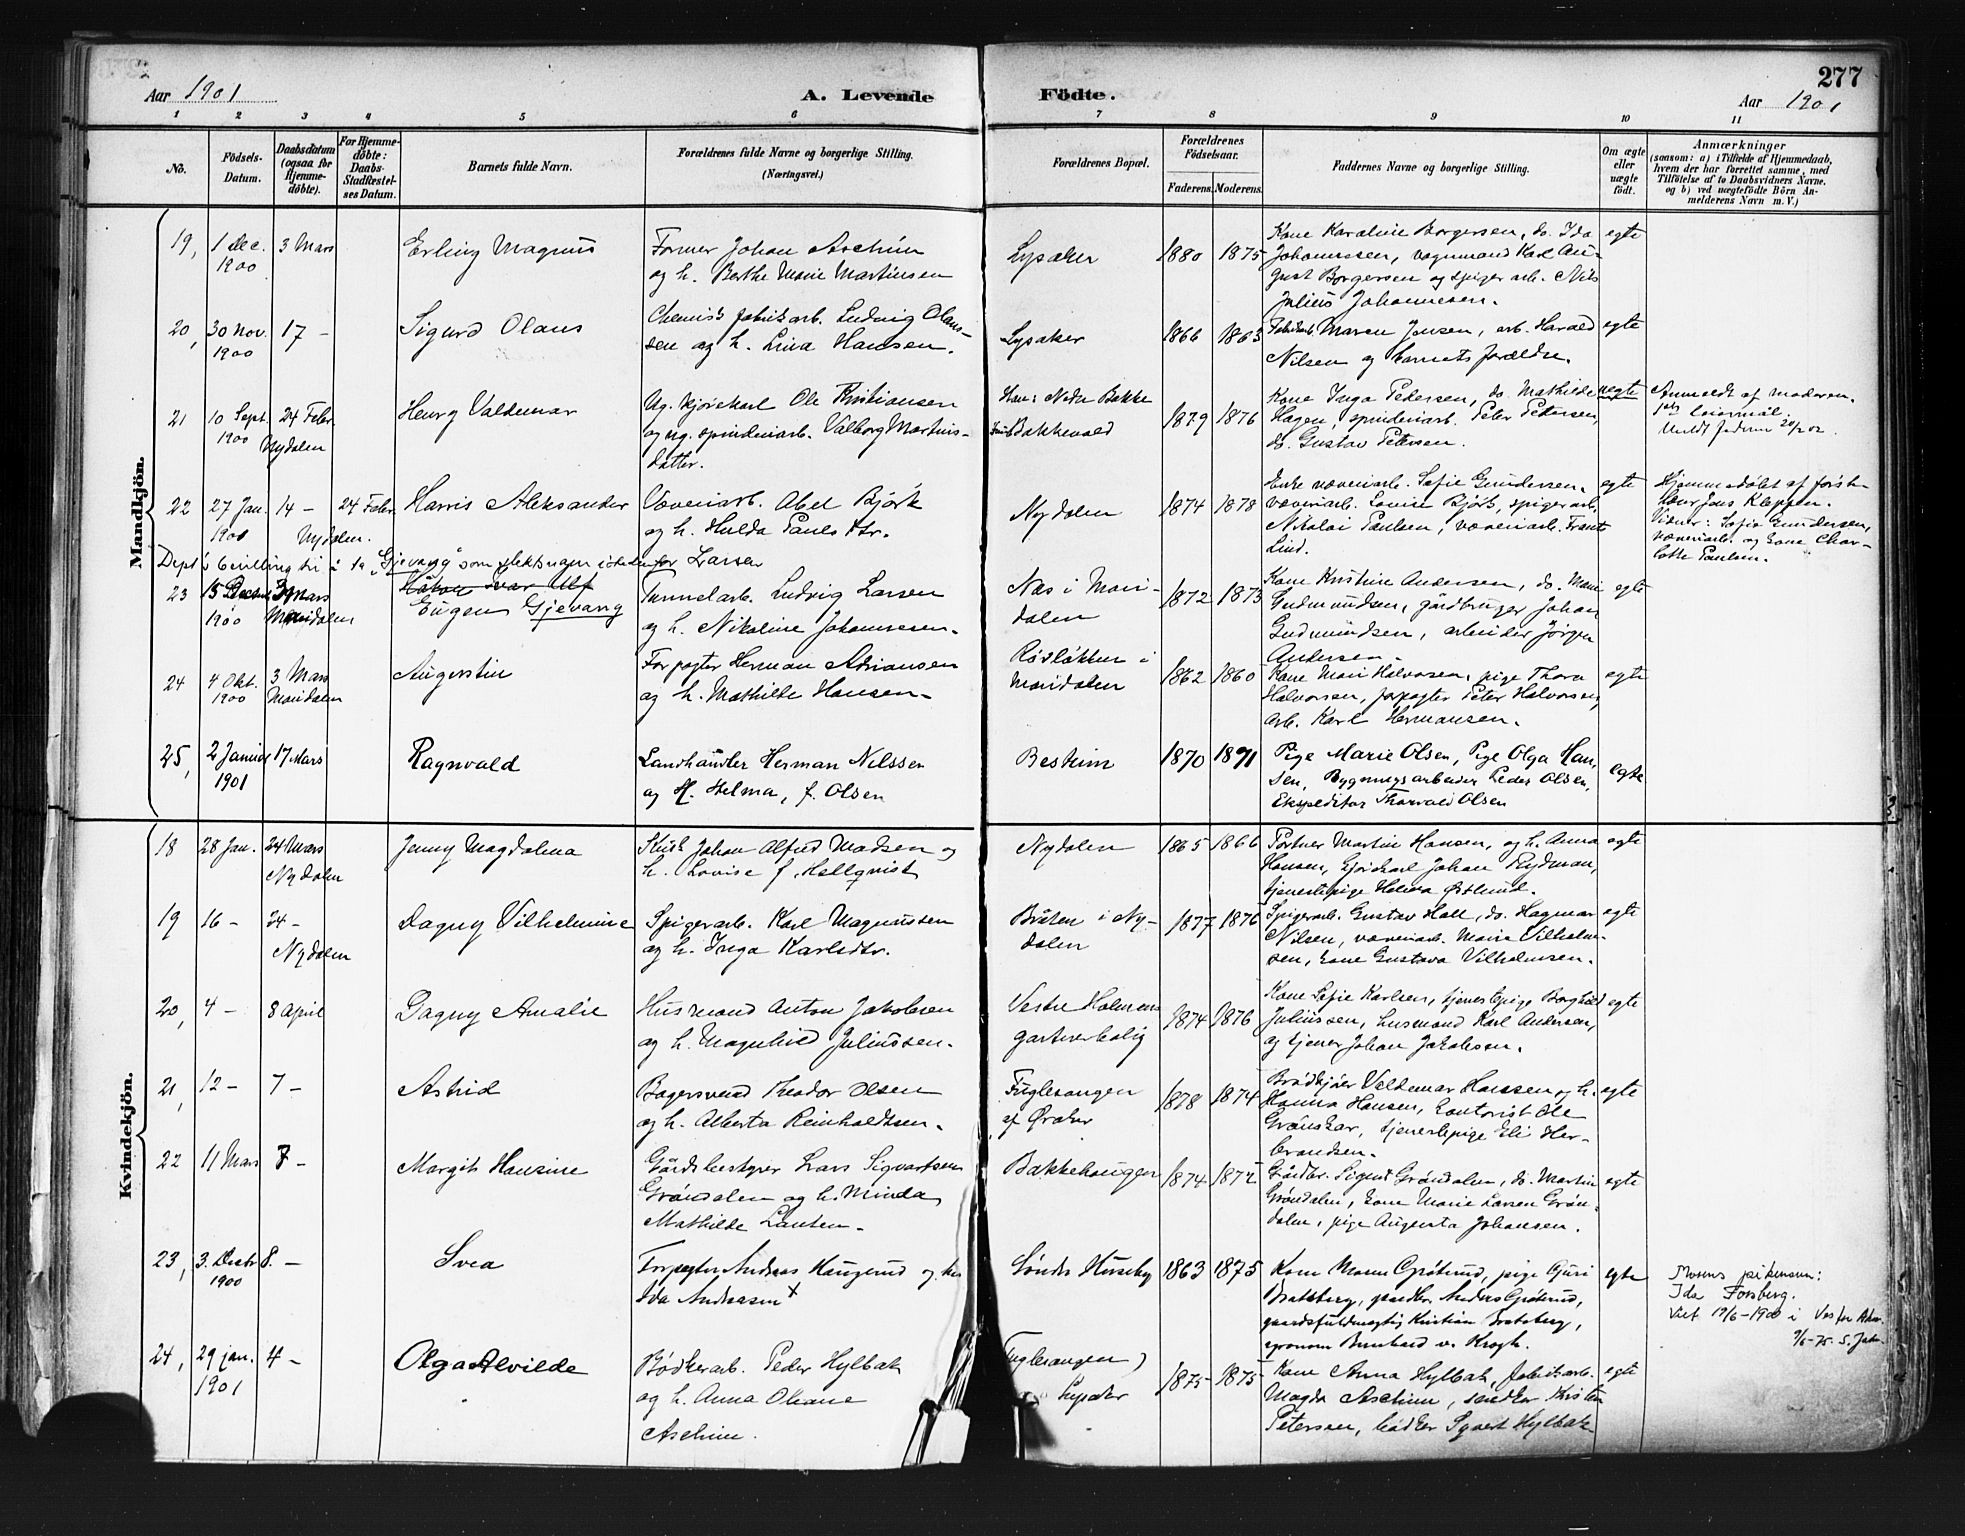 Aar 1901
A. Levende
Födte.
277
Aar 1901
1 2 3 4 5 6 7 8 9 10 11
No.
Födsels-Datum.
Daabsdatum (ogsaa for Hjemmedöbte).
For Hjemmedöbte: Daabs-Stadfæstelses Datum.
Barnets fulde Navn.
Forældrenes fulde Navne og borgerlige Stilling.
(Næringsvei.)
Forældrenes Bopæl.
Forældrenes Födselsaar.
Faderens. Moderens.
Faddernes Navne og borgerlige Stilling.
Om ægte eller uægte födt.
Anmærkninger
(saasom: a) i Tilfælde af Hjemmedaab, hvem der har forrettet samme, med Tilföielse af to Daabsvidners Navne, og b) ved uægtefödte Börn Anmelderens Navn m. V.)
Mandkjön.
19, 1 Dec. 1900 3 Mars
Erling Magnus
Former Johan Aschim
og h. Berthe Marie Martinsen
Lysaker
1880 1875
Kone Karoline Borgersen, do. Ida
Johannesen, vognmand Karl Au-
gust Borgersen og spigerarb. Nils
Julius Johannesen.
egte
20, 30 Nov. 1900 17 -
Sigurd Olaus
Chemisk fabrikarb. Ludvig Olaus-
sen og h. Lina Hansen.
Lysaker
1866 1863
Fabrikarb. Maren Jensen, arb. Harald
Nilsen og barnets forældre.
egte
21 10 Sept. 1900 24 Febr. Nydalen
Henry Valdemar
Ug. kjørekarl Ole Kristiansen
og ug. spinderiarb. Valborg Martins-
datter.
Han: Nedre Bakke
Hun: Bakkevold
1879 1876
Kone Inga Pedersen, do. Mathilde
Hagen, spinderiarb. Peter Petersen,
do. Gustav Petersen.
uegte
Anmeldt af moderen.
lejermål.
22 27 Jan. 1901 14 - Nydalen 24 Febr.
Harris Aleksander
Væveriarb. Abel Bjørk
og h. Hulda Paulsdtr.
Nydalen
1874 1878
Enke væveriarb. Sofie Gundersen,
væveriarb. Lovise Bjørk, spigerarb.
Nikolai Paulsen, væveriarb. Frantz
Lind.
egte
Hjemmedøbt af jord-
mor Jens Kleppen.
Vidner: Sofie Gundersen,
væveriarb. og kone Char-
lotte Paulsen.
"Gjevang" som slektsnavn istedenfor Larsen
23 15 Decbr. 1900 3 Mars Maridalen
Håkon Ivar Ulf
Eugen Gjevang
Tunnelarb. Ludvig Larsen
og h. Nikoline Johannesen.
Næs i Mari-
dalen
1872 1873
Kone Kristine Andersen, do. Marie
Gudmundsen, gårdbruger Johan
Gudmundsen, arbeider Jørgen
Andersen.
egte
24 4 Okt. 1900 3 Mars Maridalen
Augustin
Forpagter Herman Adriansen
og h. Mathilde Hansen.
Rødløkken i
Maridalen
1862 1860
Kone Mari Halvorsen, pige Thora
Halvorsen, forpagter Peter Halvorsen,
arb. Karl Hermansen.
egte
25, 2 Januar 1901 17 Mars
Ragnvald
Landhandler Herman Nilssen
og H. Helma, f. Olsen
Bestum
1870 1871
Pige Marie Olsen, Pige Olga Han-
sen, Bygningsarbeider Peder Olsen,
Ekspeditør Thorvald Olsen
egte
Kvindekjön.
18 28 Jan. 24 Mars Nydalen
Jenny Magdalena
Kusk Johan Alfred Madsen og
h. Lovise f. Hellqvist
Nydalen
1865 1866
Portner Martin Hansen, og h. Anna
Hansen, kjørekarl Johan Rydman,
tjenestepige Helena Østlund.
egte
19 16 - 24 - Nydalen
Dagny Vilhelmine
Spigerarb. Karl Magnussen
og h. Inga Karlsdtr.
Bråten i Ny-
dalen
1877 1876
Spigerarb. Gustav Hall, do. Hagmar
Nilsen, væveriarb. Marie Vilhelm-
sen, kone Gustava Vilhelmsen.
egte
20, 4 - 8 April
Dagny Amalie
Husmand Anton Jakobsen
og h. Magnhild Juliussen.
Vestre Holmens
gartnerbolig
1874 1876
Kone Sofie Karlsen, tjenestepige Borghild
Juliussen, husmand Karl Andersen,
og tjener Johan Jakobsen.
egte
21, 12 - 7 -
Astrid
Bagersvend Theodor Olsen
og h. Alberta Reinholdtsen.
Fuglesangen
af Øraker
1878 1874
Brødkjører Valdemar Hanssen og h.
Hanna Hansen, kontorist Ole
Grønskar, tjenestepige Eli Her-
brandsen.
egte
22 11 Mars 7 -
Margit Hansine
Gårdsbestyrer Lars Sigvartsen
Grøndalen og h. Minda
Mathilde Lauten.
Bakkehaugen
1874 1872
Gårdbr. Sigurd Grøndalen, do. Martin
Grøndalen, kone Marie Larsen Grøn-
dalen, pige Augusta Johansen.
egte
23, 3. Decbr 1900 8. -
Svea
Forpagter Andreas Haugerud og hu
Ida Andreasen x
Søndre Huseby
1863 1875
Kone Maren Grøterud, pige Guri
Bratsberg, gaardbr. Anders Grøterud,
gaardsfuldmægtig Kristian Bratsberg,
agronom Bernhard v. Krogh.
egte
Morens pikenavn:
Ida Forsberg.
Viet 19/6-1900 i Vestre Aker
9/6-75. S. Jahr
24, 29 jan. 1901 4 -
Olga Alvilde
Bødkerarb. Peder Hylbak
og h. Anna Oliane
Aschim.
Fuglesangen,
Lysaker
1875 1875
Kone Anna Hylbak, fabrikarb.
Magda Aschim, snedker Kristen
Petersen, bødker Syvert Hylbak.
egte